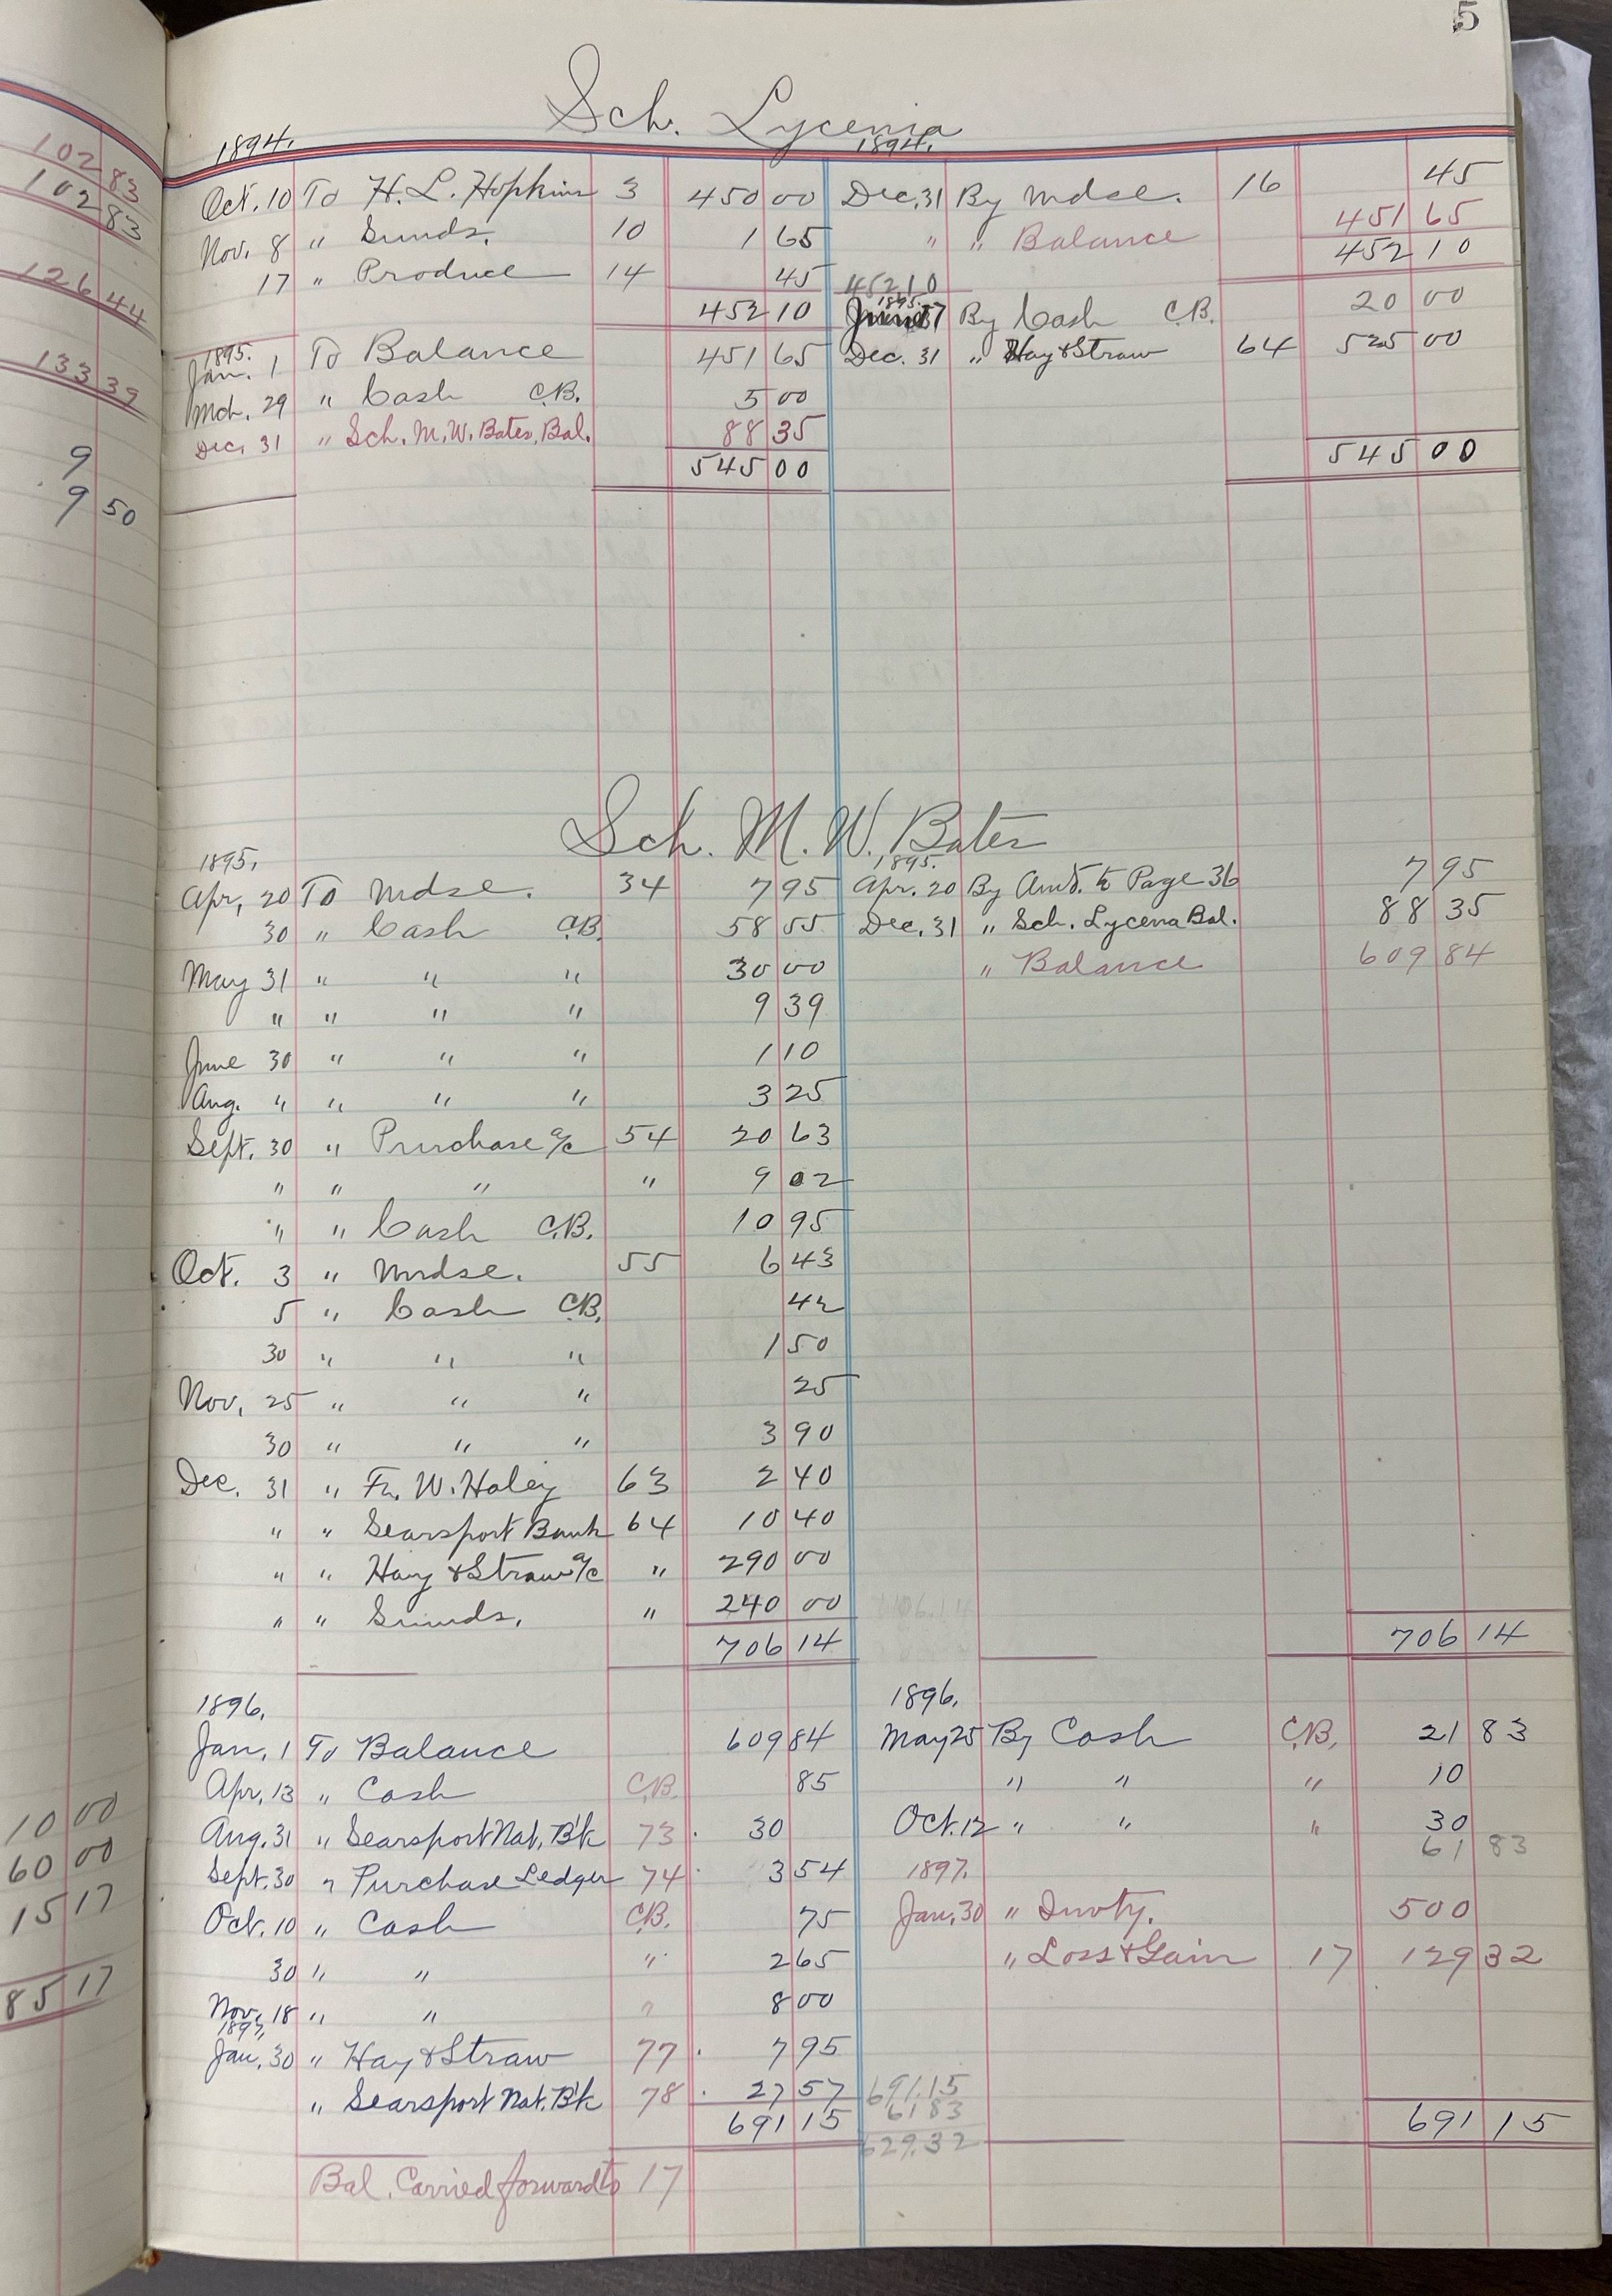 5
Sch. Lycenia
1894. 1894.
Oct. 10 To H. L. Hopkins 3 450 00 Dec. 31 By Mdse. 16 45
Nov. 8 " Sunds. 10 1 65 " " Balance 451 65
17 " Produce 14 45 45210 452 10
452 10 1895. 17 By Cash C.B. 20 00
1895. Jan. 1 To Balance 451 65 Dec. 31 " Hay & Straw 64 525 00
Mch. 29 " Cash C.B. 5 00
Dec. 31 " Sch. M. W. Bates, Bal. 88 35
545 00 545 00
Sch. M. W. Bates
1895. 1895.
Apr. 20 To Mdse. 34 7 95 Apr. 20 By Amt. to Page 36 7 95
30 " Cash C.B. 58 55 Dec. 31 " Sch. Lycena Bal. 88 35
May 31 " " " 30 00 " Balance 609 84
" " " " 9 39
June 30 " " " 1 10
Aug. " " " " 3 25
Sept. 30 " Purchase a/c 54 20 63
" " " " 9 02
" " Cash C.B. 10 95
Oct. 3 " Mdse. 55 6 43
5 " Cash C.B. 42
30 " " " 1 50
Nov. 25 " " " 25
30 " " " 3 90
Dec. 31 " Fr. W. Haley 63 2 40
" " Searsport Bank 64 10 40
" " Hay & Straw a/c " 290 00
" " Sunds. " 240 00
706 14 706 14
1896. 1896.
Jan. 1 To Balance 609 84 May 25 By Cash C.B. 21 83
Apr. 13 " Cash C.B. 85 " " " 10
Aug. 31 " Searsport Nat. B'k 73 30 Oct. 12 " " " 30
61 83
Sept. 30 " Purchase Ledger 74 3 54 1897.
Oct. 10 " Cash C.B. 75 Jan. 30 " Invty. 500
30 " " " 2 65 " Loss & Gain 17 129 32
Nov. 18 " " " 8 00
1897, Jan. 30 " Hay & Straw 77 7 95
" Searsport Nat. B'k 78 27 57 691.15
691 15 61 83 691 15
629.32
Bal. Carried forward to 17
102 83
102 83
126 44
133 39
9
9 50
10 00
60 00
15 17
85 17